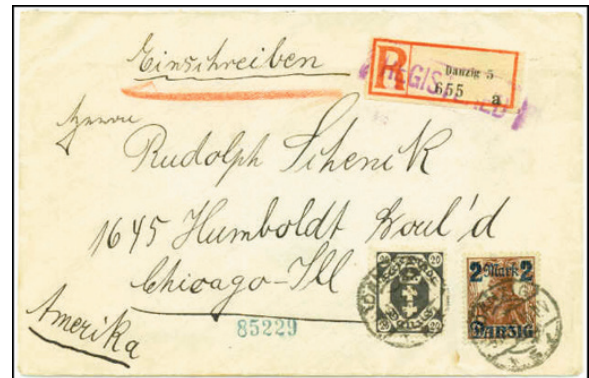 Einschreiben
R
Danzig 5
655 a
REGISTERED
Herrn
Rudolph Schenik
1645 Humboldt Boul'd
Chicago-Ill
Amerika
85229
20 20
20 20
2 Mark 2
DANZIG